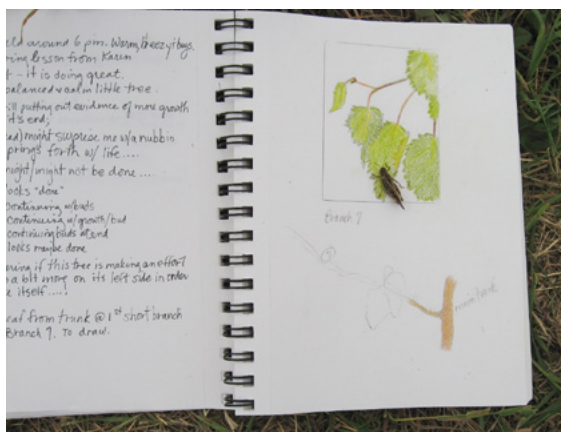 eld around 6 pm. Warm, breezy, bugs.
ring lesson from Karin
t - it is doing great.
balanced & calm little tree.
ill putting out evidence of more growth
it's end;
ead) might surprise me w/a nubbin
springs forth w/ life....
might/might not be done....
looks "done"
continuing w/buds
continuing w/growth/bud
continuing buds at end
looks maybe done
ering if this tree is making an effort
a bit more on its left side in order
e itself....!
eaf from trunk @ 1st short branch
Branch 7. To draw.
Branch 7
main trunk